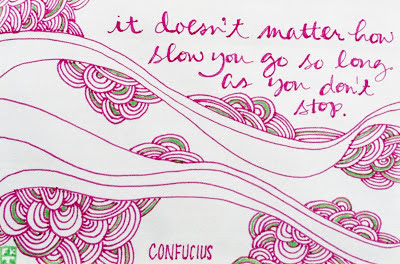 it doesn't matter how
slow you go so long.
as you don't
stop.
CONFUCIUS